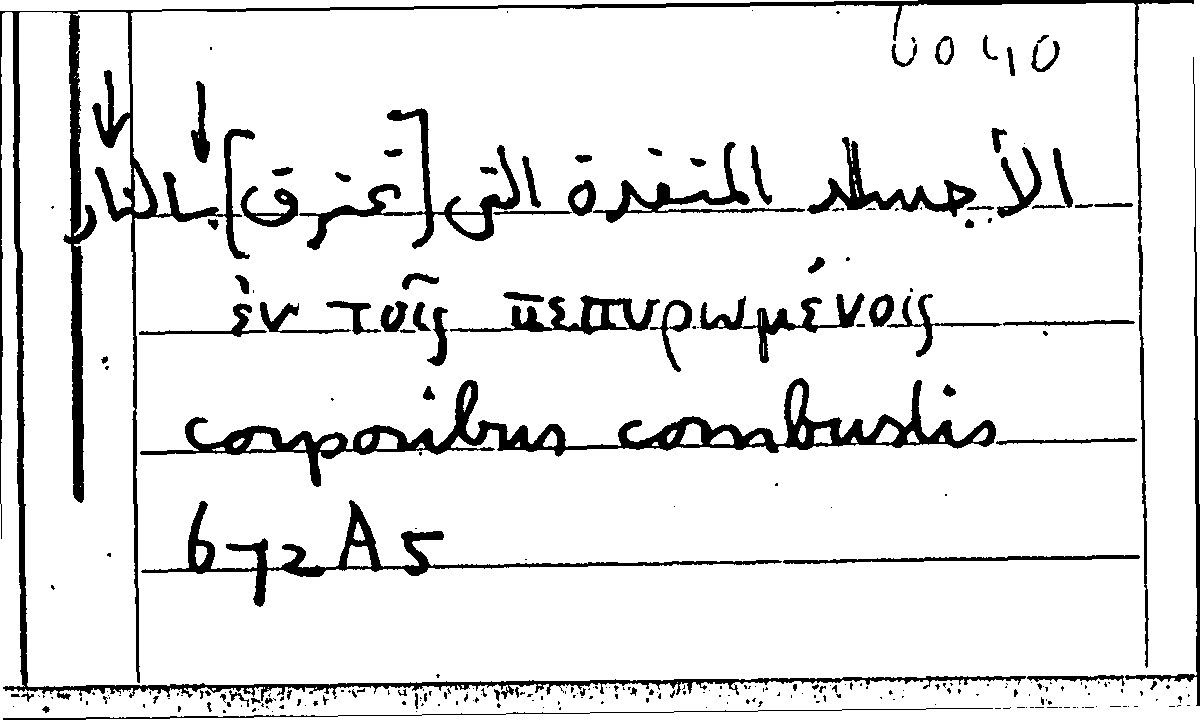 6040
الأجساد المتغيرة التي [تحترق] بالنار
ἐν τοῖς πεπυρωμένοις
corporibus combustis
672A5